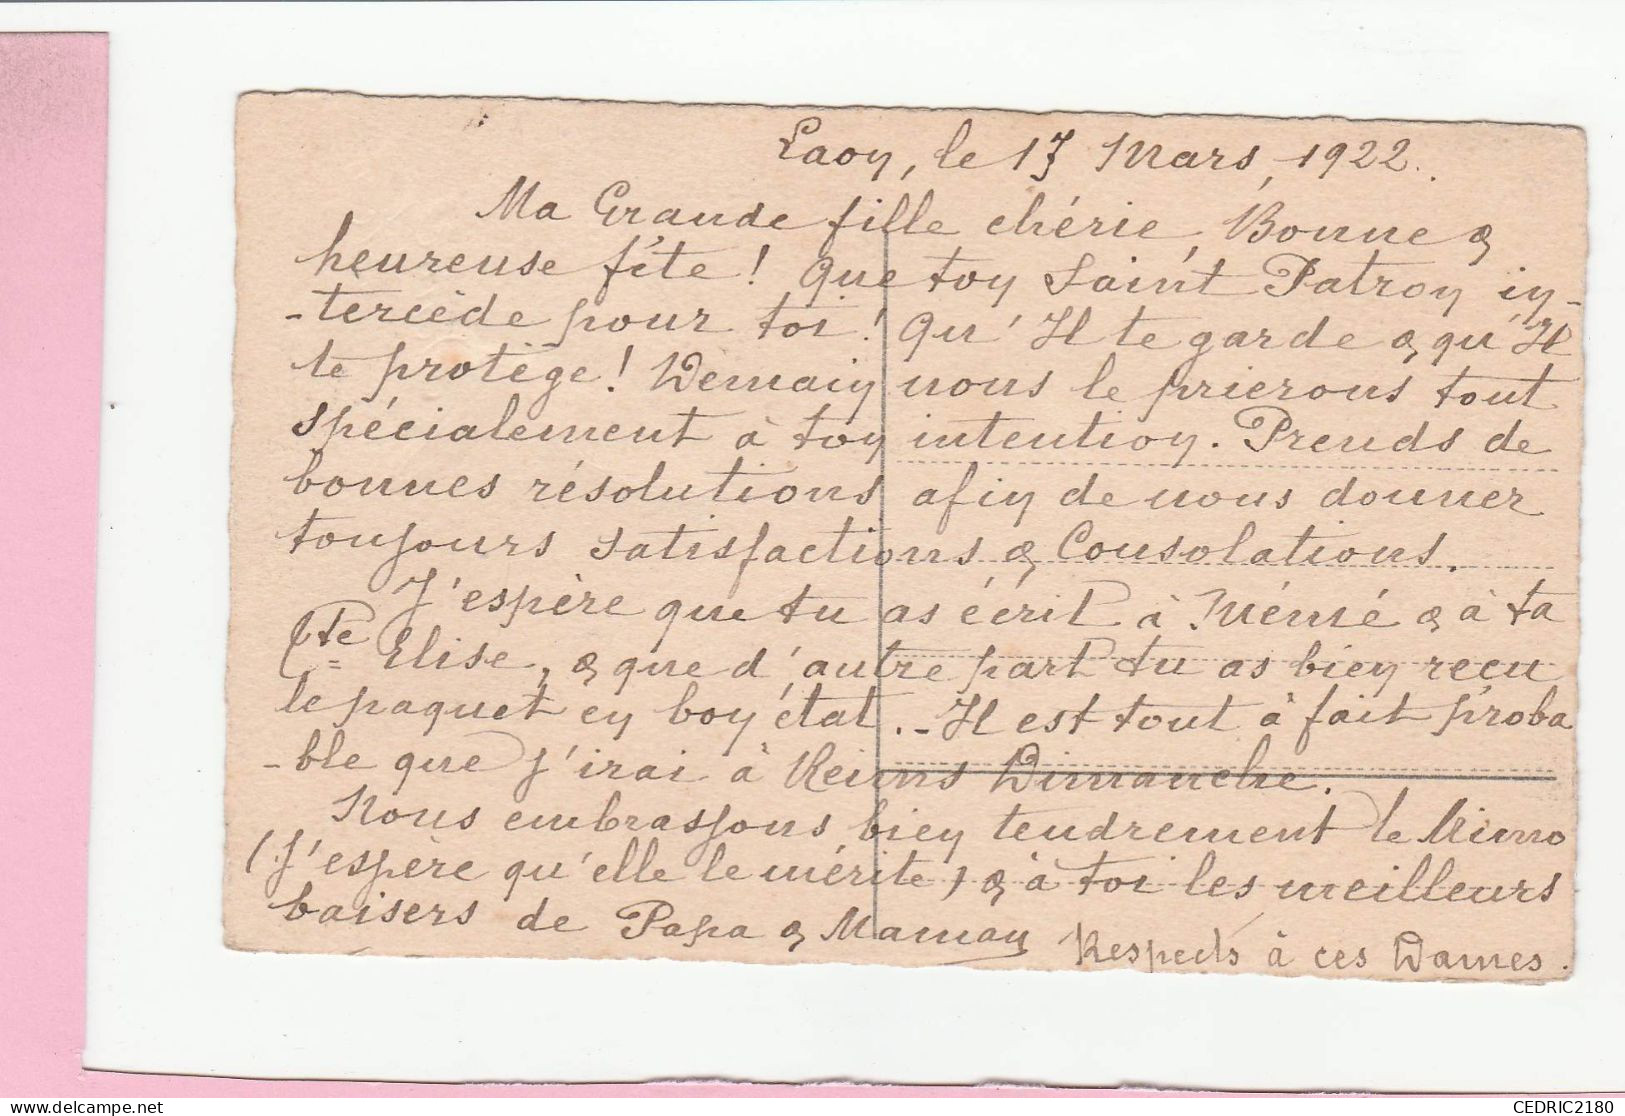 Laon, le 17 Mars, 1922.
Ma Grande fille chérie, Bonne &
heureuse fête ! Que ton Saint Patron in-
-tercède pour toi ! Qu'Il te garde & qu'Il
te protège ! Demain nous le prierons tout
spécialement à ton intention. Prends de
bonnes résolutions afin de nous donner
toujours satisfactions & Consolations.
J'espère que tu as écrit à Mémé & à ta
Cte Elise, & que d'autre part tu as bien reçu
le paquet en bon état. - Il est tout à fait proba
-ble que j'irai à Reims Dimanche.
Nous embrassons bien tendrement le Mimo
(J'espère qu'elle le mérite) & à toi les meilleurs
baisers de Papa & Maman Respects à ces Dames.
CEDRIC2180